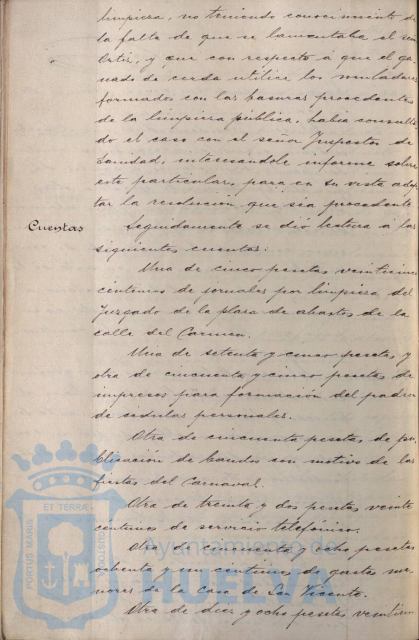 limpieza, no teniendo conocimiento de
la falta de que se lamentaba el señor
Ortiz, y que con respecto á que el ga-
nado de cerda utilice los muladares
formados con las basuras procedentes
de la limpieza pública, había consulta-
do el caso con el señor Inspector de
Sanidad, interesándole informe sobre
este particular, para en su vista adop-
tar la resolución que sea procedente
Cuentas
Seguidamente se dió lectura á las
siguientes cuentas:
Una de cinco pesetas veinticinco
céntimos de jornales por limpieza del
Juzgado de la plaza de abastos de la
calle del Carmen.
Una de setenta y cinco pesetas y
otra de cincuenta y cinco pesetas de
impresos para formación del padrón
de cédulas personales.
Otra de cincuenta pesetas de pu-
blicación de bandos con motivo de las
fiestas del Carnaval.
Otra de treinta y dos pesetas veinte
céntimos de servicio telefónico.
Otra de cincuenta y ocho pesetas
ochenta y un céntimos de gastos me-
nores de la Casa de San Vicente.
Otra de diez y ocho pesetas
PORTUS MARIS
ET TERRÆ
CUSTODIA
Ayuntamiento de
HUELVA